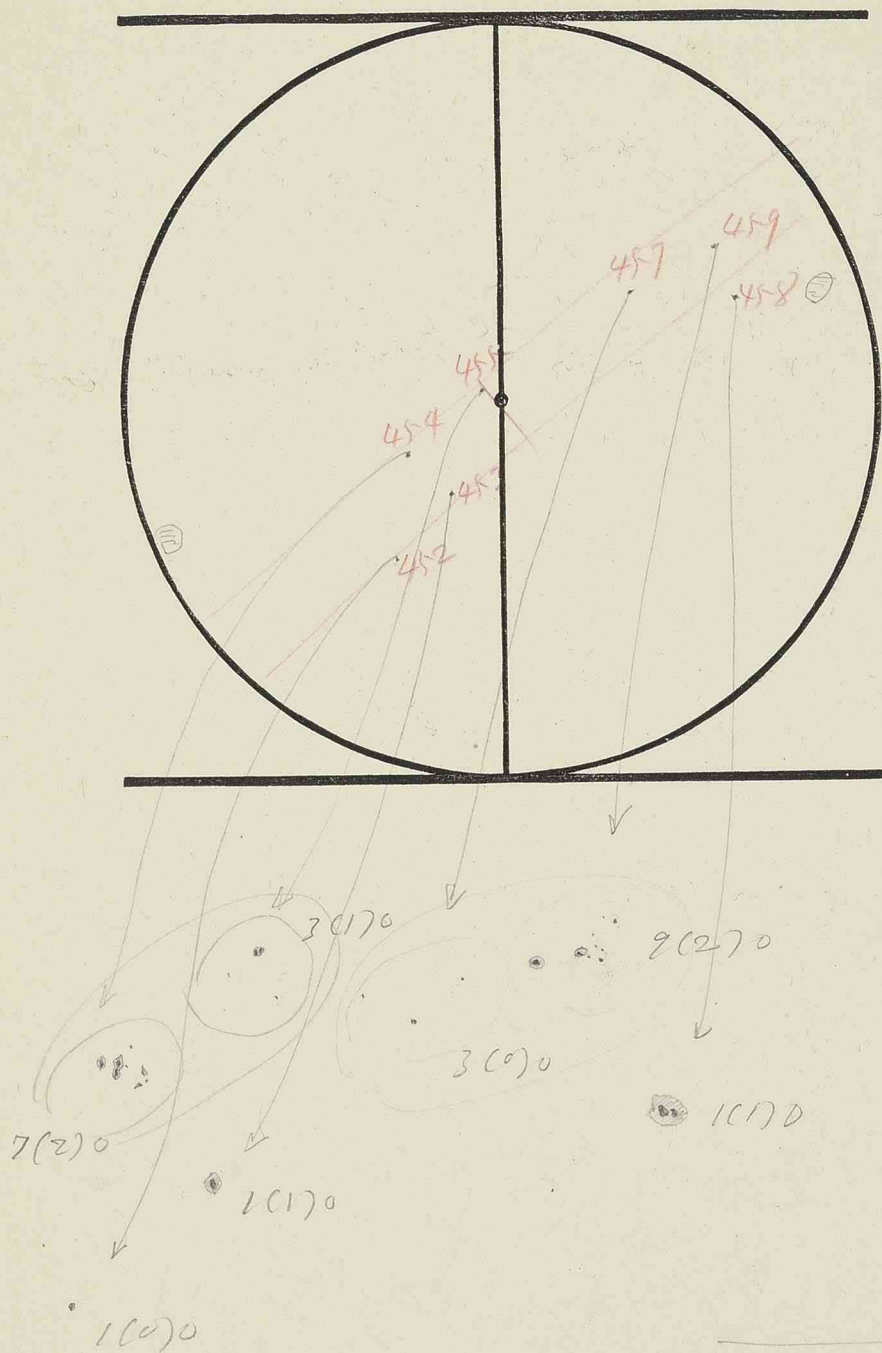 459
457
458
455
454
453
452
3(1)0
9(2)0
3(0)0
1(1)0
7(2)0
1(1)0
1(0)0